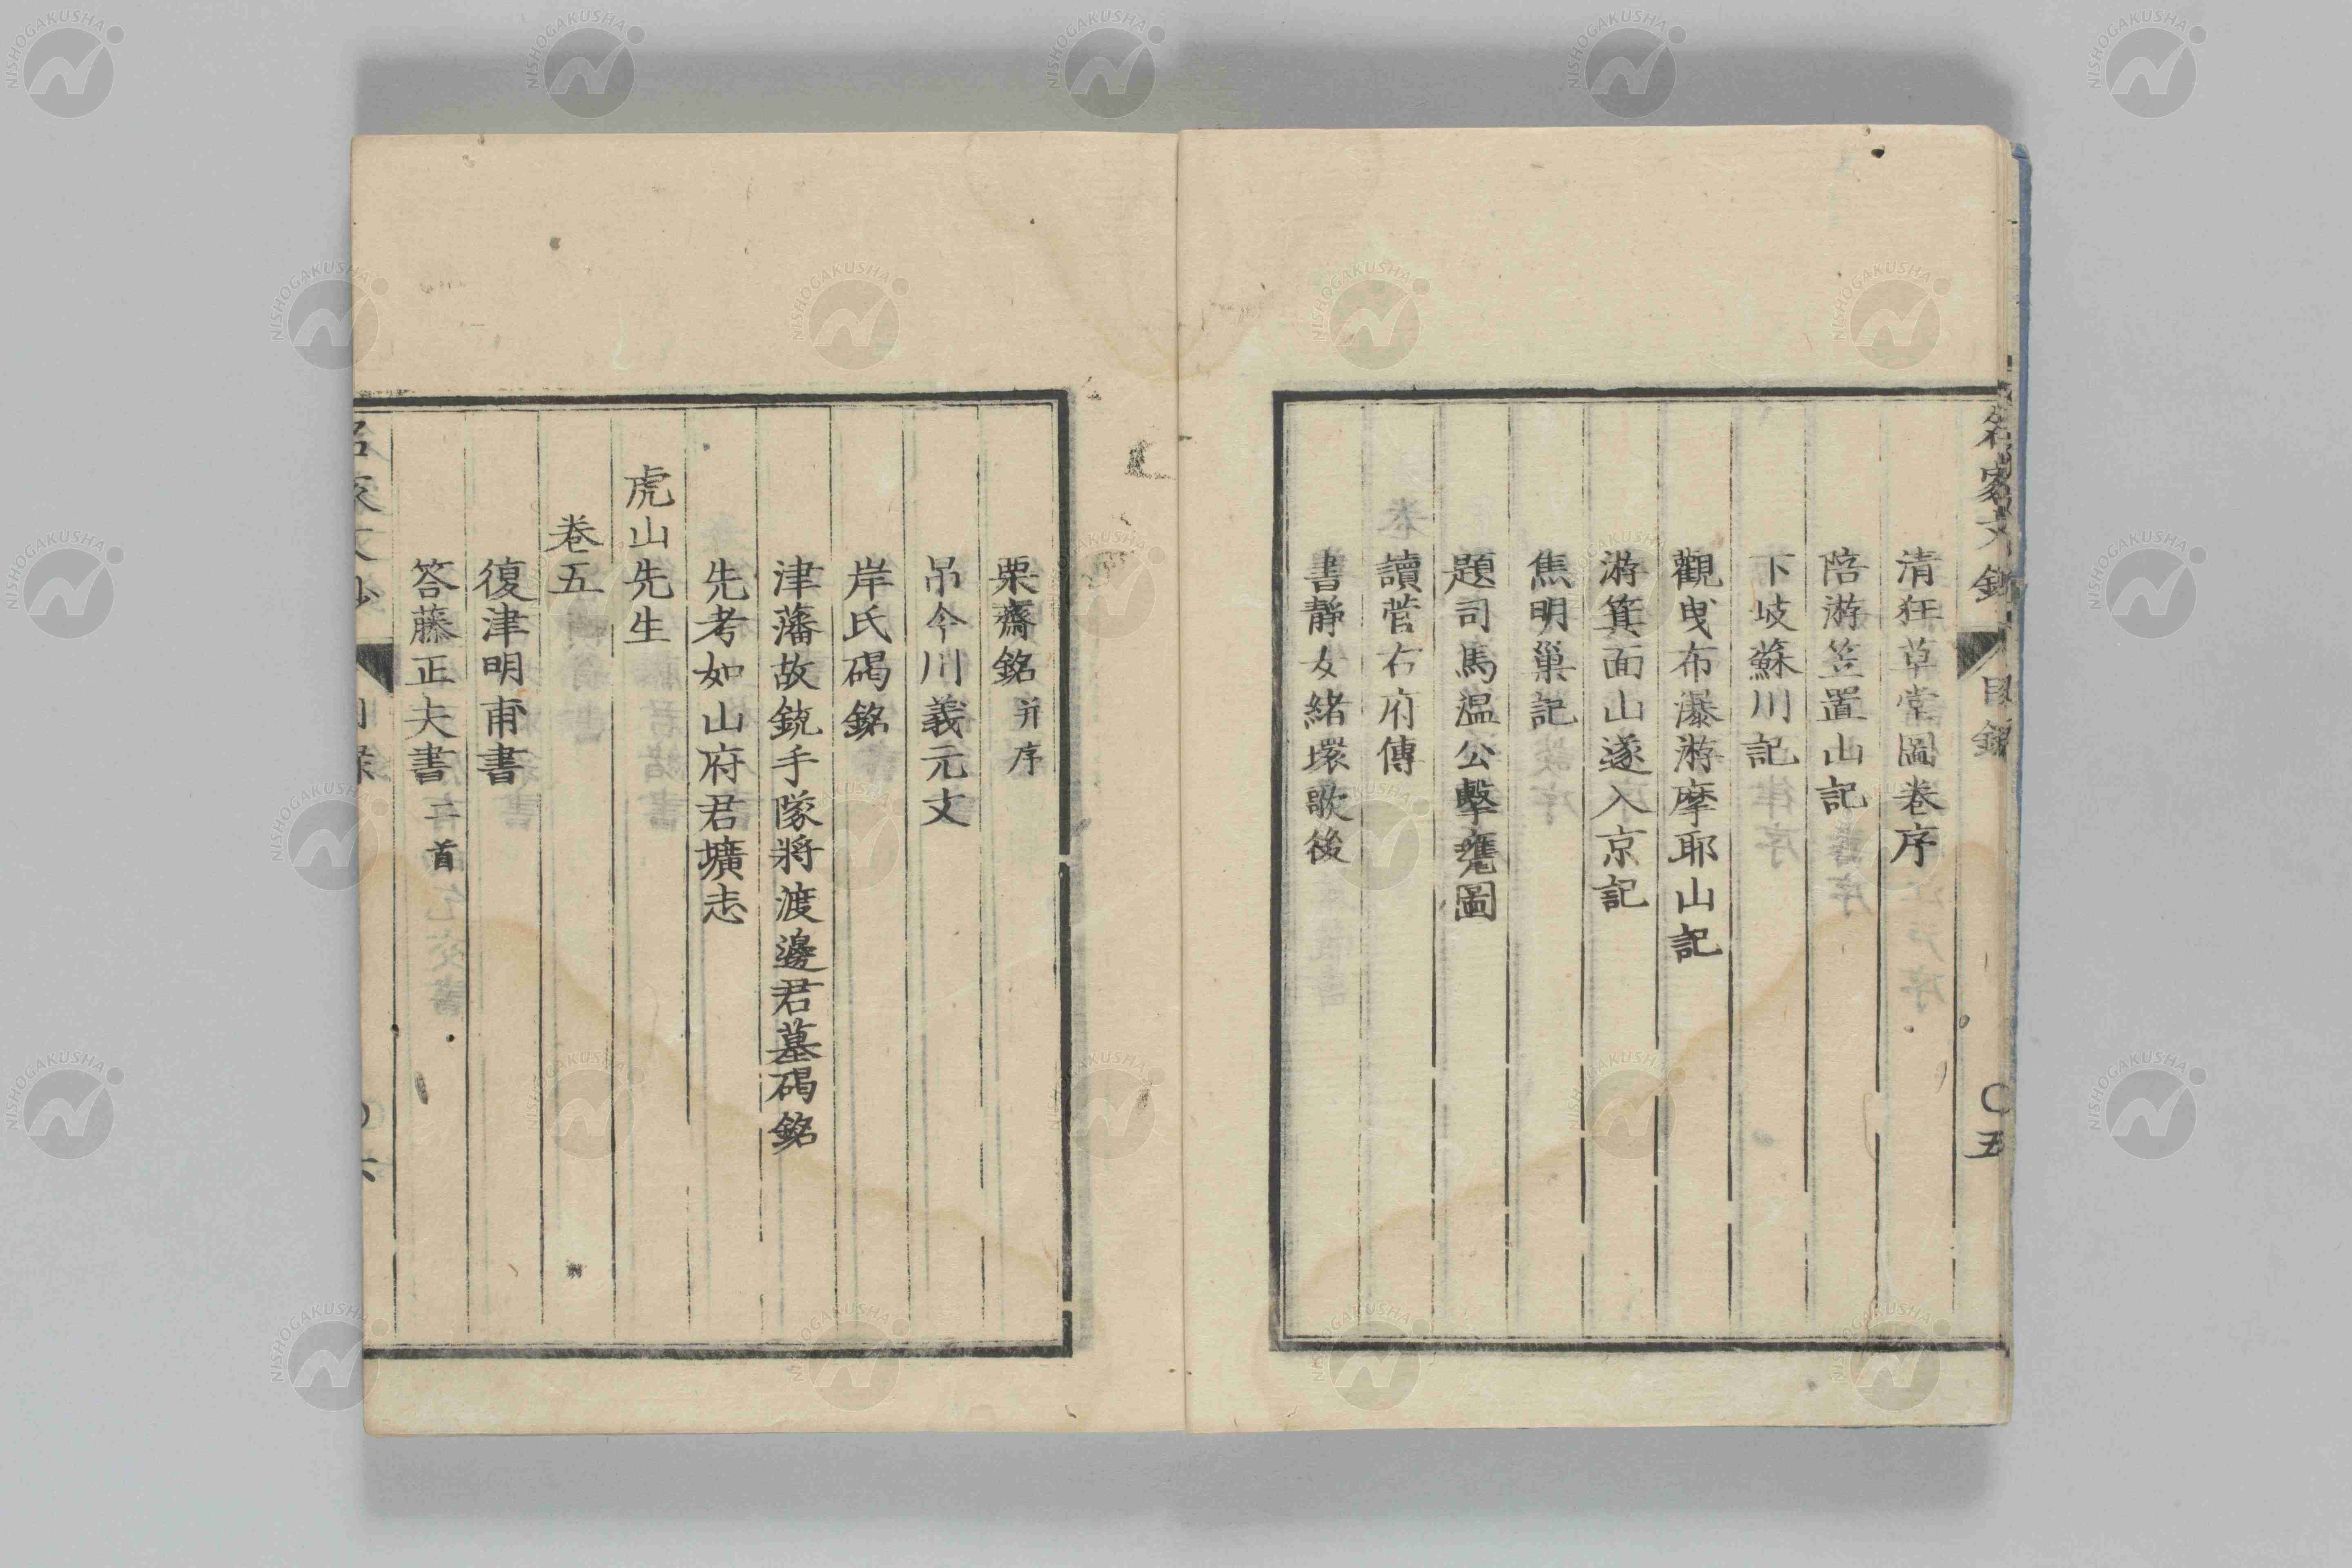 名家文鈔
目錄
〇五
清狂草堂圖卷序
陪游笠置山記
下岐蘇川記
觀曳布瀑游摩耶山記
游箕面山遂入京記
焦明巢記
題司馬溫公擊甕圖
讀菅右府傳
書靜女緒環歌後
栗齋銘并序
吊今川義元文
岸氏碣銘
津藩故銃手隊將渡邊君墓碣銘
先考如山府君壙志
虎山先生
卷五
復津明甫書
答藤正夫書二首
名家文鈔
NISHOGAKUSHA